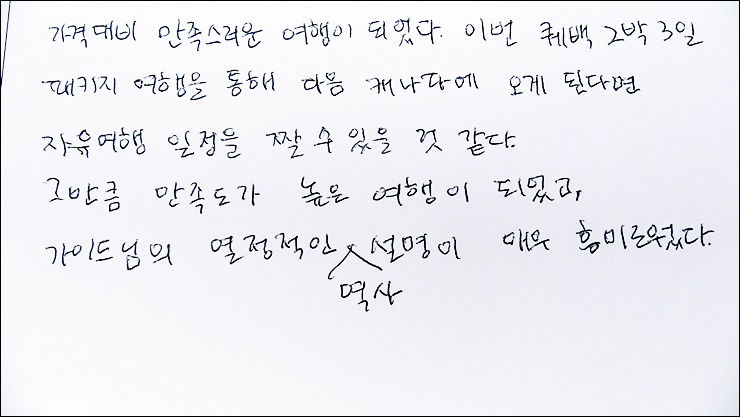 가격대비 만족스러운 여행이 되었다. 이번 퀘백 2박 3일
패키지 여행을 통해 다음 캐나다에 오게 된다면
자유여행 일정을 짤 수 있을 것 같다.
그만큼 만족도가 높은 여행이 되었고,
가이드님의 열정적인 설명이 매우 흥미로웠다.
역사